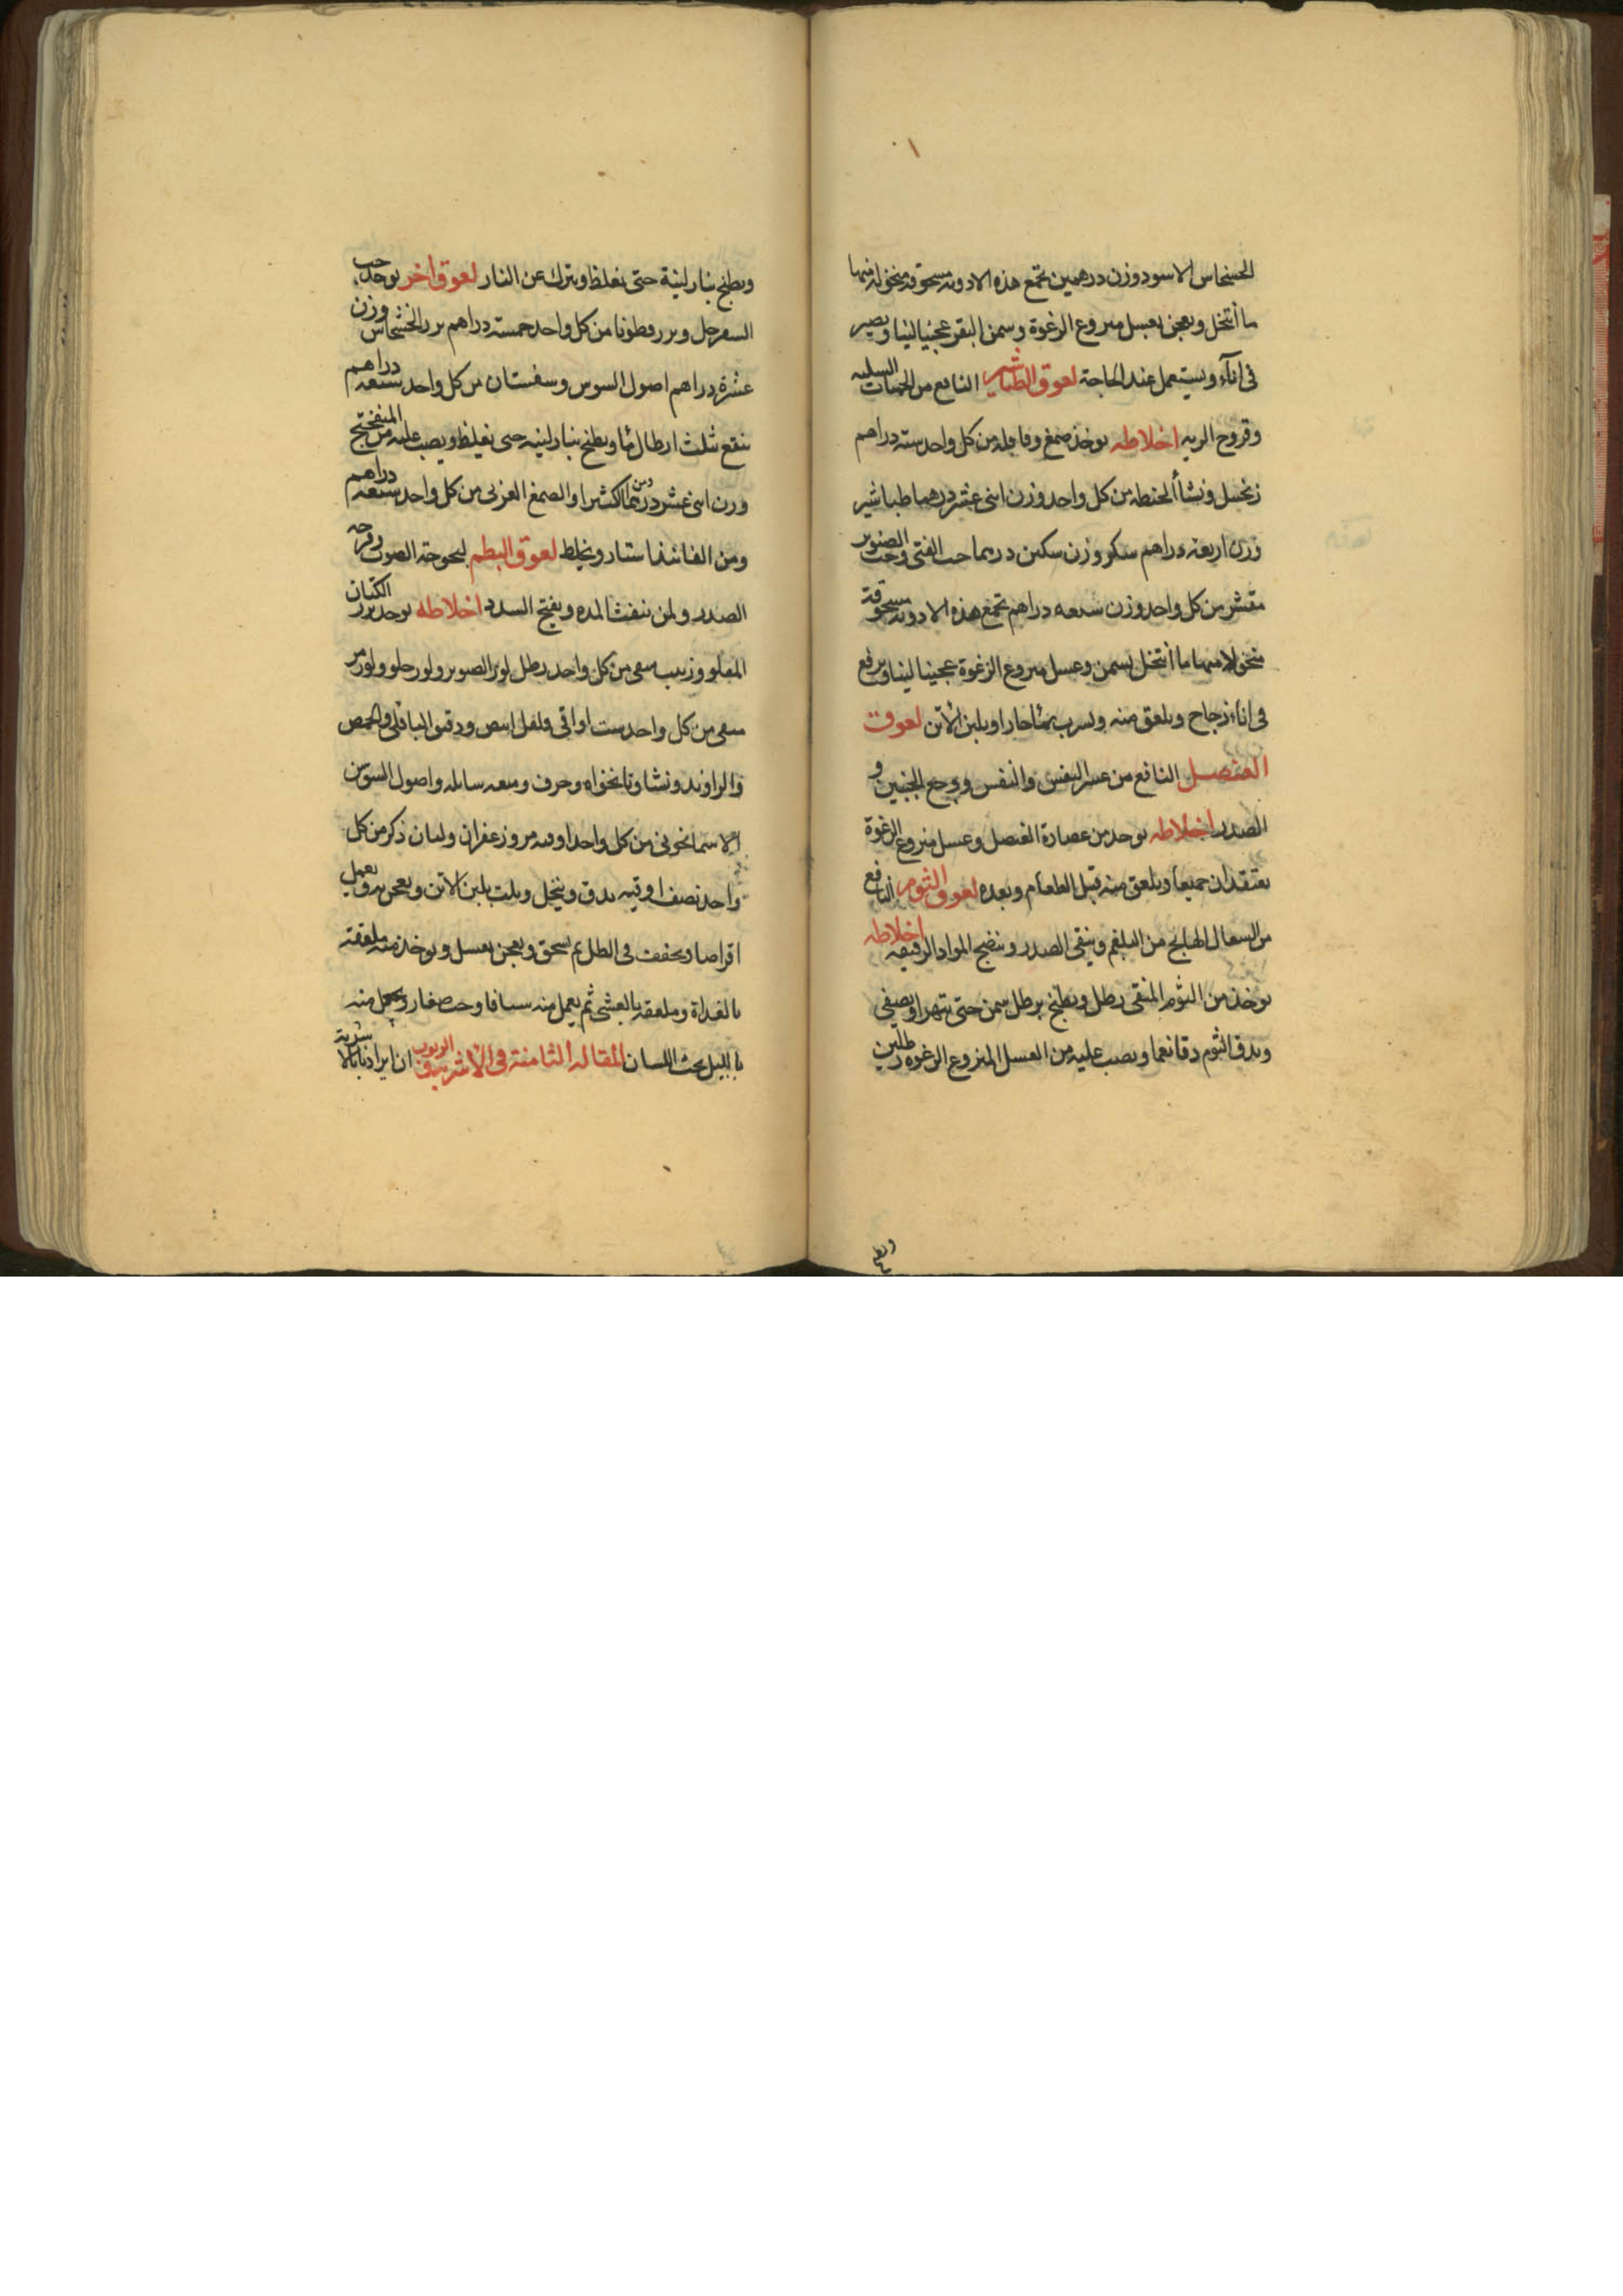 الخشخاش الاسود وزن درهمين تجمع هذه الادويه مسحوقه منخوله منها
ما أنتخل ويعجن بعسل منزوع الرغوة وسمن البقر عجينا لينا ويصير
فى اناء ويستعمل عند الحاجة لعوق الطباشير النافع من الحميات السليه
وقروح الريه اخلاطه يوخذ صمغ وقاقله من كل واحد سته دراهم
زنجبيل ونشا الحنطه من كل واحد وزن اثنى عشر درهما طباشير
وزن اربعة دراهم سكر وزن سكين درهما حب القثى وحب الصنوبر
مقشر من كل واحد وزن سبعه دراهم تجمع هذه الادويه مسحوقة
منخولا منها ما أنتخل بسمن وعسل منزوع الرغوة عجينا لينا ويرفع
فى اناء زجاج ويلعق منه ويشرب بماء حار او بلبن الأتن لعوق
العنصل النافع من عسر النفس والنفس ووجع الجنبين و
الصدر اخلاطه يوخذ من عصارة العنصل وعسل منزوع الرغوة
يعتقدان جميعا ويلعق منه قبل الطعام وبعده لعوق الثوم النافع
من السعال الهايج من البلغم وينقى الصدر وينضج المواد الرقيقه اخلاطه
يوخذ من الثوم المنقى رطل ويطبخ برطل سمن حتى يتهرا ويصفى
ويدق الثوم دقا نعما ويصب عليه من العسل المنزوع الرغوه رطلين
ويطبخ
ويطبخ بنار لينة حتى يغلظ ويترك عن النار لعوق اخر يوخذ حب
السفرجل وبزر قطونا من كل واحد خمسة دراهم بزر الخشخاش وزن
عشرة دراهم اصول السوس وسفستان من كل واحد سبعه دراهم
ينقع بثلث ارطال ماء ويطبخ بنار لينه حتى يغلظ ويصب عليه من المبفختج
وزن اثنى عشر درهما ومن الكثيرا والصمغ العربى من كل واحد سبعه دراهم
ومن الفانيذ استار ويخلط لعوق البطم لبحوحة الصوت وقرحه
الصدر ولمن ينفث المده ويفتح السدد اخلاطه يوخذ بزر الكتان
المقلو وزبيب منقى من كل واحد رطل لوز الصنوبر ولوز حلو ولوز مر
منقى من كل واحد ست اواقى فلفل ابيض ودقيق الباقلى والحمص
والراوند ونشا ونانخواه وحرف وميعه سايله واصول السوسن
الاسمانجونى من كل واحد اوقيه مر وزعفران ولبان ذكر من كل
واحد نصف اوقيه يدق وينخل ويلت بلبن الأتن ويعجن به ويعمل
اقراصا ويجفف فى الظل ثم يسحق ويعجن بعسل ويوخذ منه ملعقة
بالغداة وملعقه بالعشى ثم يعمل منه شيافا وحب صغار ويجعل منه
بالليل تحت اللسان المقاله الثامنة فى الأشربة والربوب ان ايرادنا بالاشربة